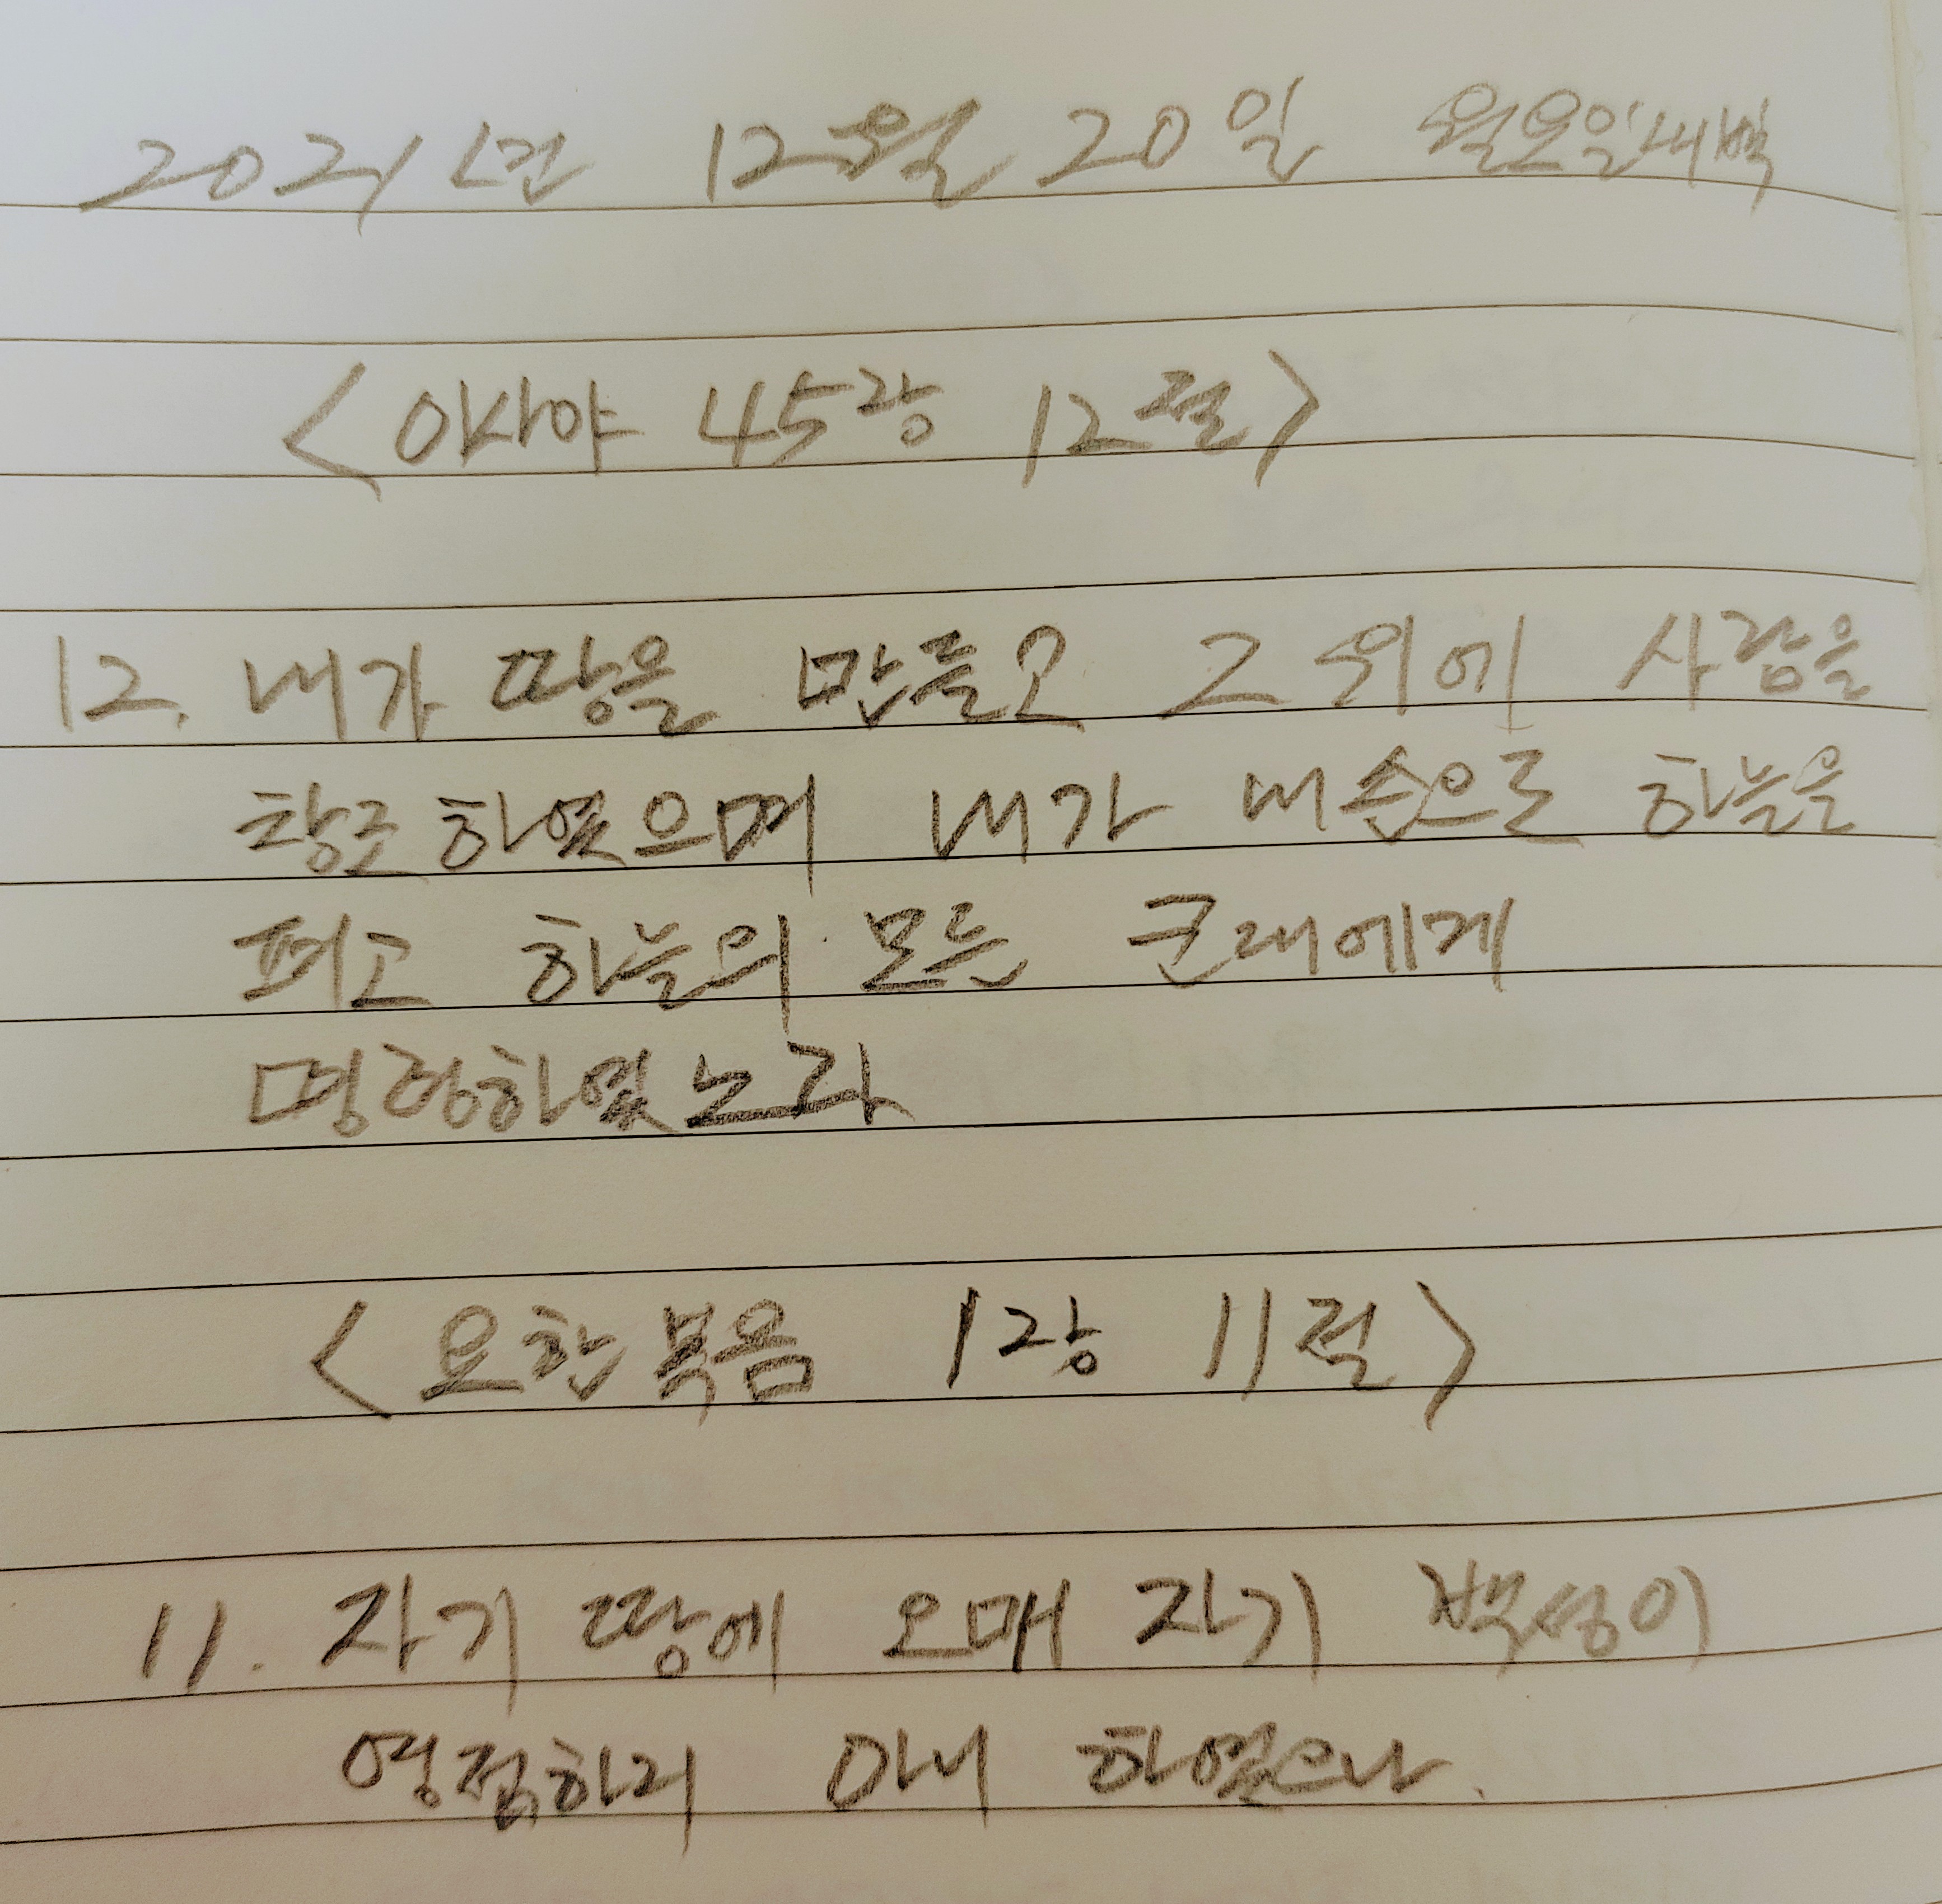 2021년 12월 20일 월요일새벽
<이사야 45장 12절>
12. 내가 땅을 만들고 그 위에 사람을
창조하였으며 내가 내 손으로 하늘을
펴고 하늘의 모든 군대에게
명령하였노라
<요한복음 1장 11절>
11. 자기 땅에 오매 자기 백성이
영접하지 아니 하였으나.